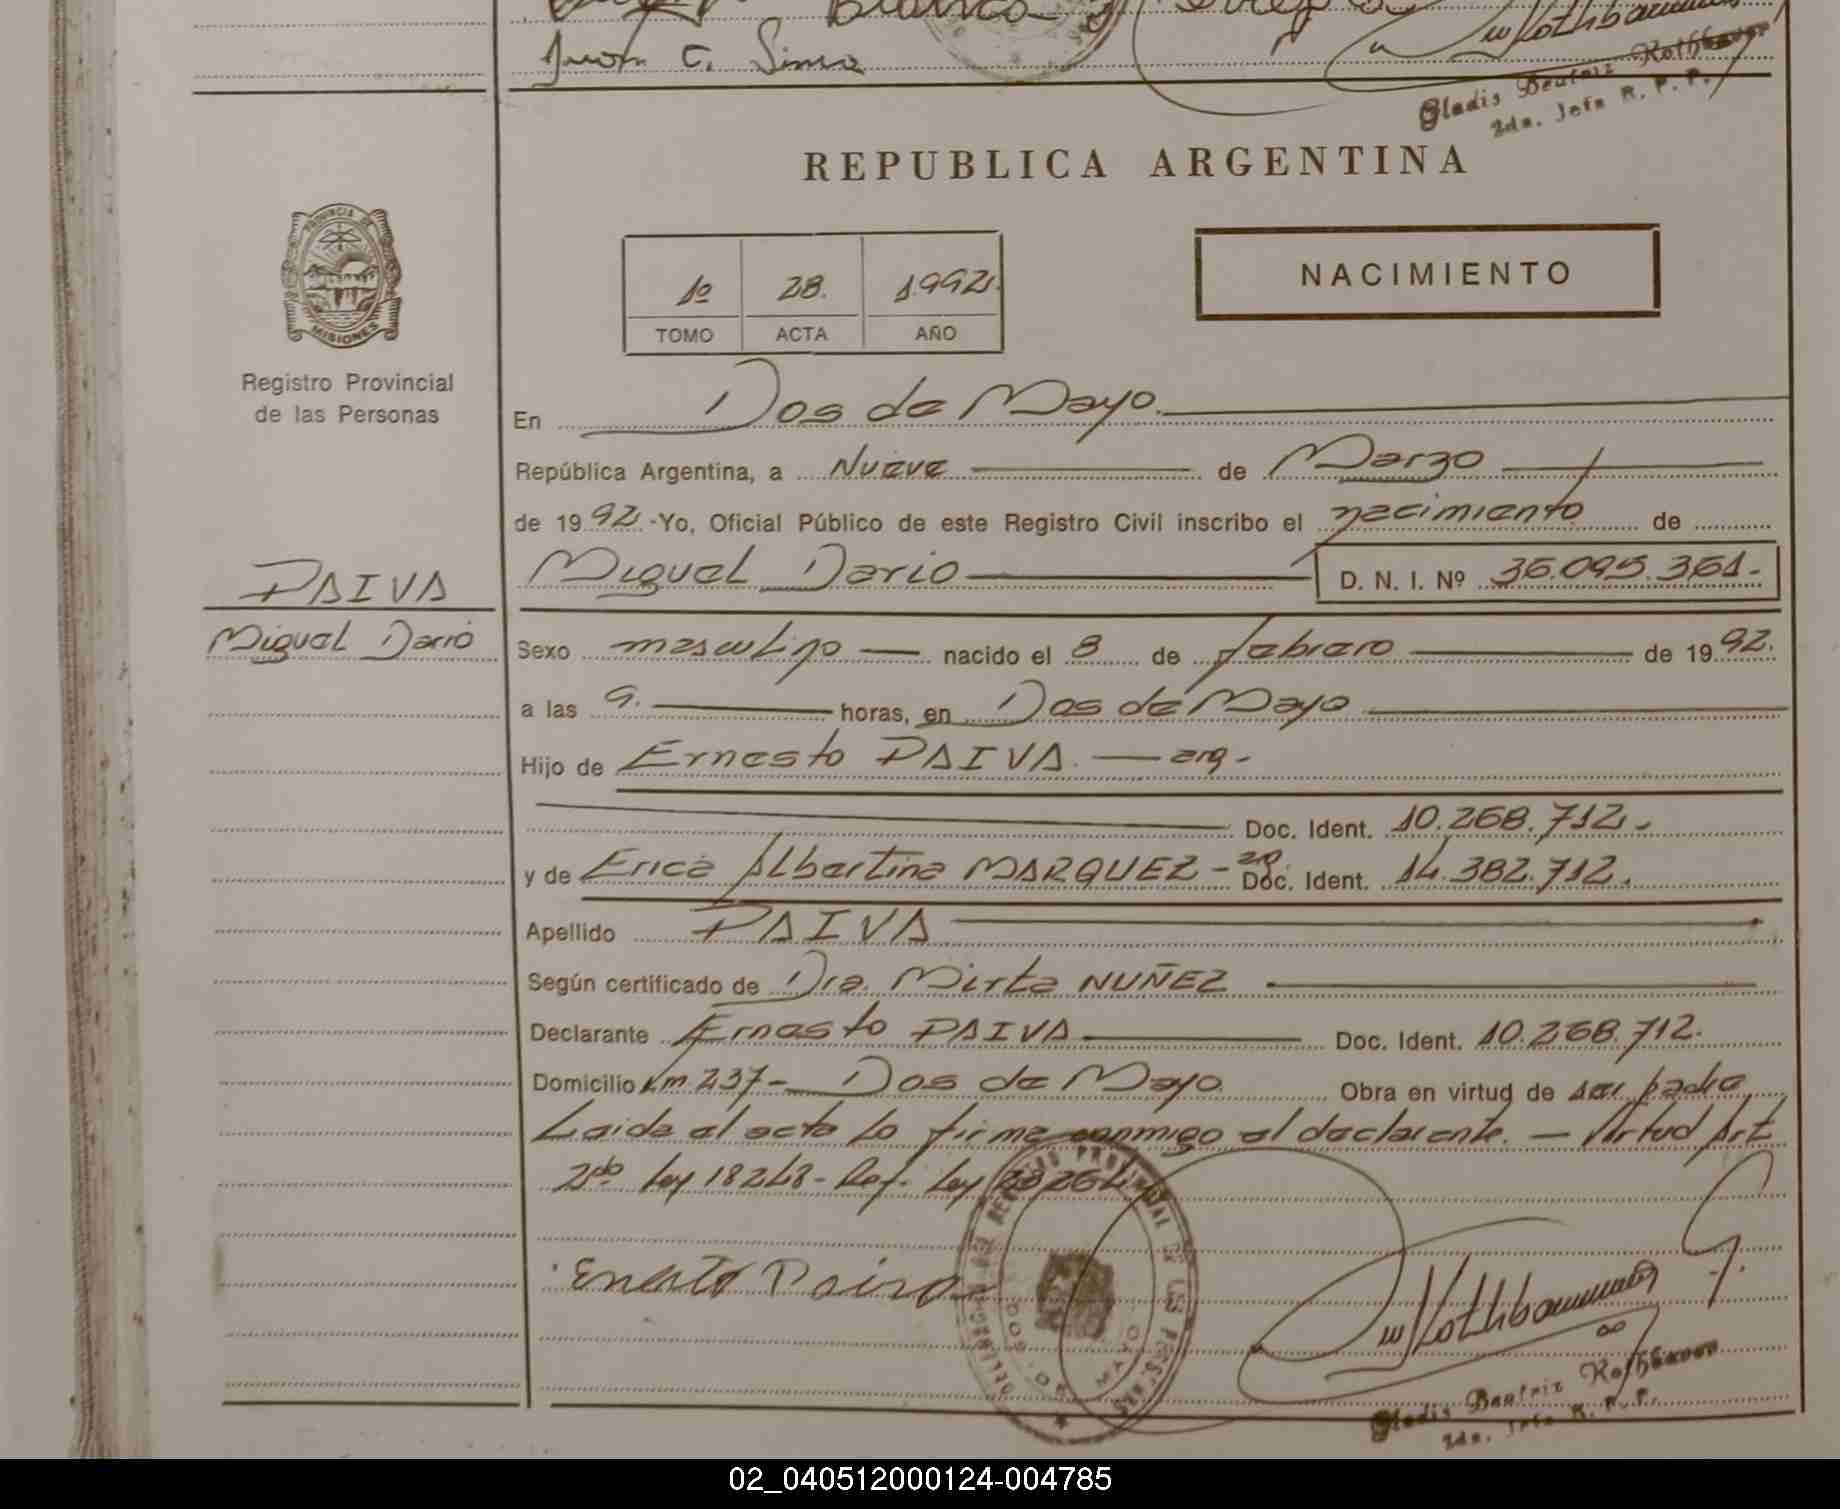 Juan C. Sima
Gladis Beatriz
2da. Jefa R. P. P.
REPUBLICA ARGENTINA
PROVINCIA DE
MISIONES
Registro Provincial
de las Personas
1º 28. 1.992.
TOMO ACTA AÑO
NACIMIENTO
En Dos de Mayo.
República Argentina, a Nueve de Marzo
de 19 92 -Yo, Oficial Público de este Registro Civil inscribo el nacimiento de
PAIVA
Miguel Dario D. N. I. Nº 36.095.361.-
Miguel Dario
Sexo masculino nacido el 8 de febrero de 19 92.
a las 9. horas, en Dos de Mayo
Hijo de Ernesto PAIVA. arg-
Doc. Ident. 10.268.712.-
y de Erica Albertina MARQUEZ - arg. Doc. Ident. 14.382.712.
Apellido PAIVA
Según certificado de Dra. Mirta NUÑEZ
Declarante Ernesto PAIVA Doc. Ident. 10.268.712.
Domicilio Km. 237- Dos de Mayo Obra en virtud de ser padre
Leida el acta lo firma conmigo el declarante. - Virtud Art
2do ley 18248- Ref. ley 23264
Ernesto Paiva
Gladis Beatriz
2da. Jefa R. P. P.
02_040512000124-004785